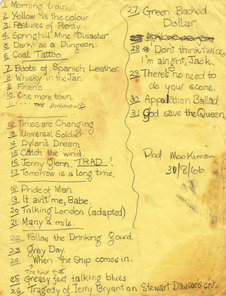 Morning train...
2 Yellow is the colour
3 Pastures of Plenty.
4 Springhill Mine "Disaster"
5 Dark as a Dungeon.
6 Coal Tattoo
7 Boots of Spanish Leather.
8 Whisky in the Jar.
9
10 One more town.
11
12 Times are Changing
13 Universal Soldier
14 Dylan's Dream
15 Catch the wind
16 Jenny Glenn, TRAD!
17 Tomorrow is a long time.
18 Pride of Man.
19 It ain't me, Babe.
20 Talking London (adapted)
21 Many a mile.
22 Follow the Drinking Gourd.
23 Grey Day.
24 When the Ship comes in.
25 Greasy feet talking blues
26 Tragedy of Terry Bryant on Stewart Dawsons cnr.
27 Green Backed
Dollar.
28 Don't think twice,
I'm alright, Jack.
29 There's no need to
do your
30 Ballad
31 God save the Queen
Rod
30/8/66